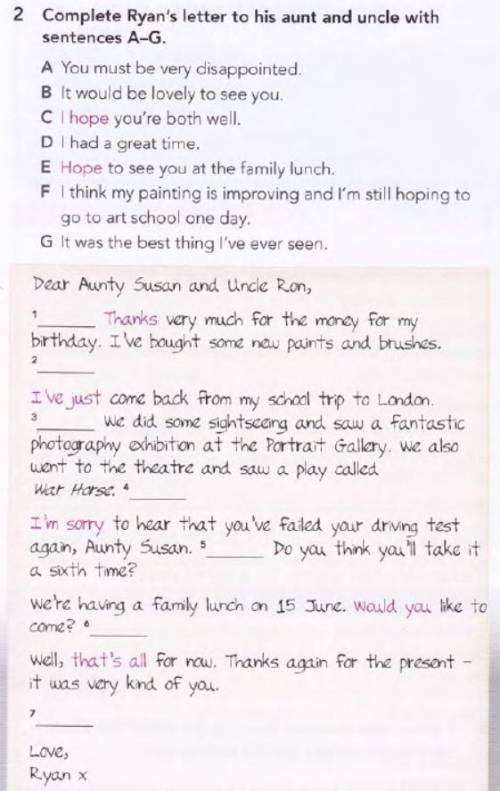 2 Complete Ryan's letter to his aunt and uncle with
sentences A–G.
A You must be very disappointed.
B It would be lovely to see you.
C I hope you're both well.
D I had a great time.
E Hope to see you at the family lunch.
F I think my painting is improving and I'm still hoping to
go to art school one day.
G It was the best thing I've ever seen.
Dear Aunty Susan and Uncle Ron,
1______ Thanks very much for the money for my
birthday. I've bought some new paints and brushes.
2______
I've just come back from my school trip to London.
3______ We did some sightseeing and saw a fantastic
photography exhibition at the Portrait Gallery. We also
went to the theatre and saw a play called
War Horse. 4______
I'm sorry to hear that you've failed your driving test
again, Aunty Susan. 5______ Do you think you'll take it
a sixth time?
We're having a family lunch on 15 June. Would you like to
come? 6______
Well, that's all for now. Thanks again for the present –
it was very kind of you.
7______
Love,
Ryan x